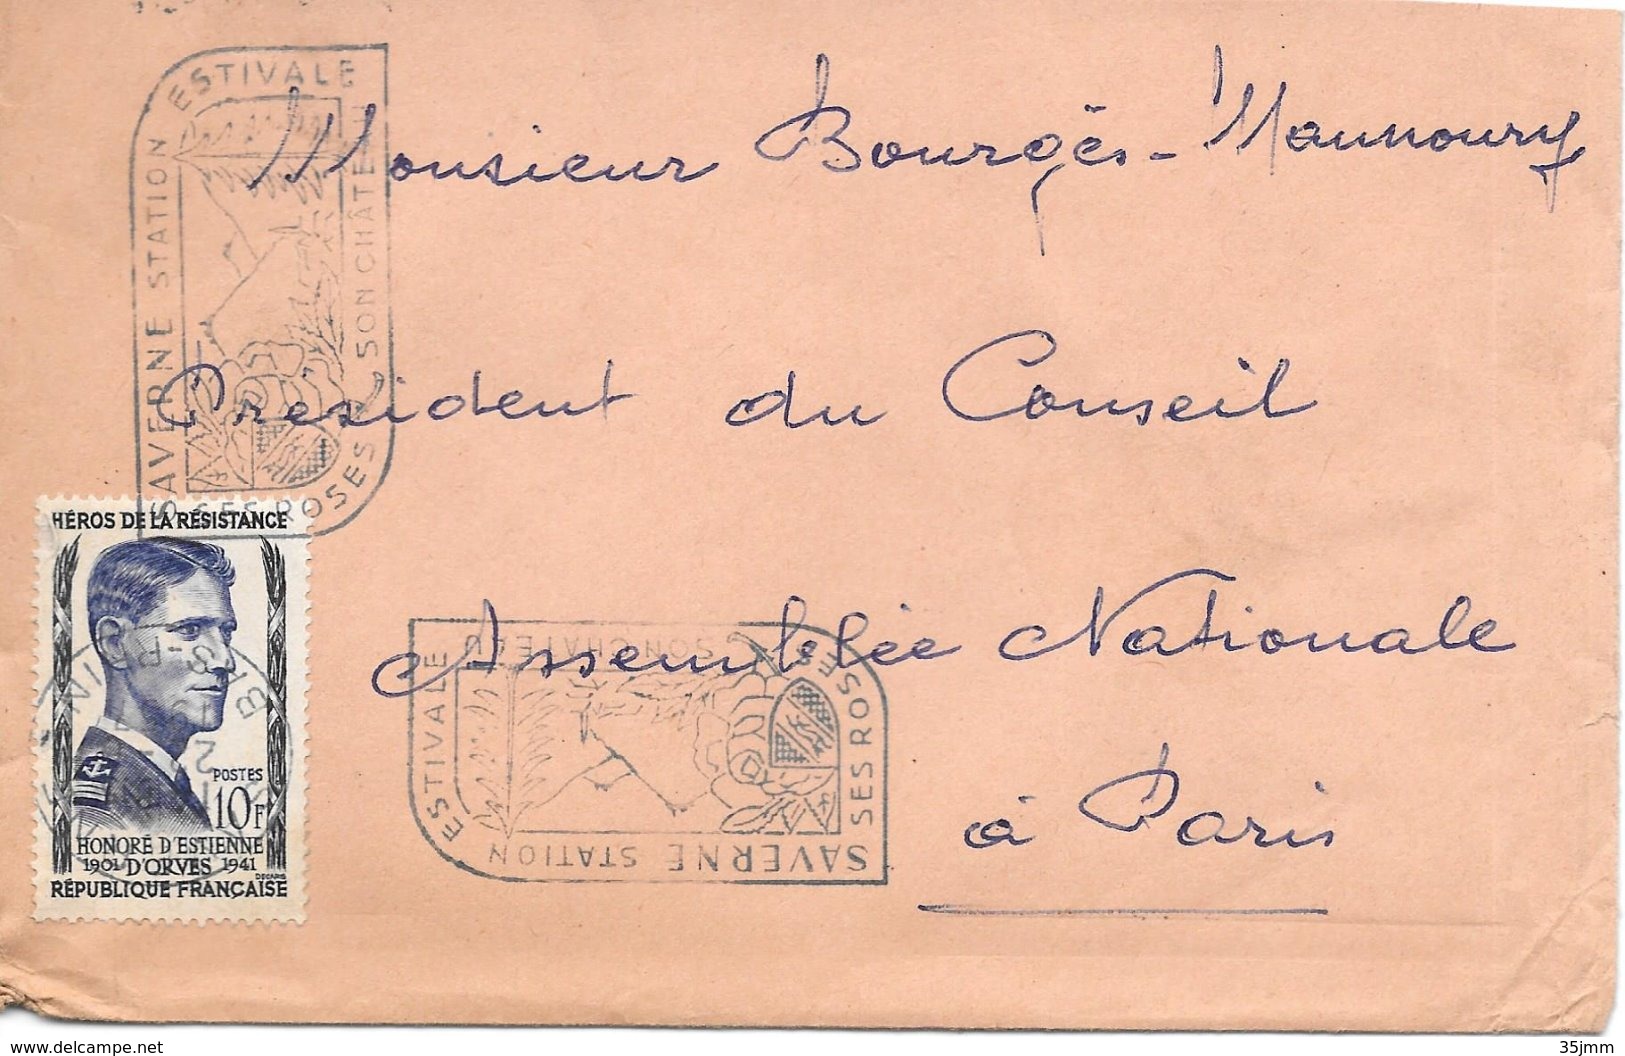 SAVERNE STATION ESTIVALE
SON CHÂTEAU
SES ROSES
Monsieur Bourgès-Maunoury
Président du Conseil
Assemblée Nationale
à Paris
HÉROS DE LA RÉSISTANCE
POSTES
10F
HONORÉ D'ESTIENNE
1901 D'ORVES 1941
DECARIS
RÉPUBLIQUE FRANÇAISE
SAVERNE STATION
ESTIVALE
SON CHÂTEAU
SES ROSES
www.delcampe.net
35jmm